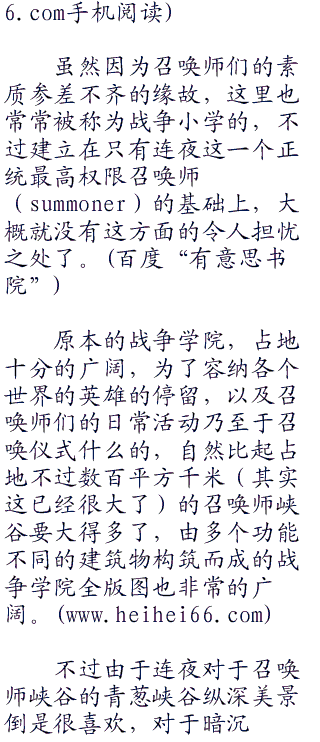 6.com手机阅读)
虽然因为召唤师们的素
质参差不齐的缘故，这里也
常常被称为战争小学的，不
过建立在只有连夜这一个正
统最高权限召唤师
（summoner）的基础上，大
概就没有这方面的令人担忧
之处了。(百度“有意思书
院”)
原本的战争学院，占地
十分的广阔，为了容纳各个
世界的英雄的停留，以及召
唤师们的日常活动乃至于召
唤仪式什么的，自然比起占
地不过数百平方千米（其实
这已经很大了）的召唤师峡
谷要大得多了，由多个功能
不同的建筑物构筑而成的战
争学院全版图也非常的广
阔。(www.heihei66.com)
不过由于连夜对于召唤
师峡谷的青葱峡谷纵深美景
倒是很喜欢，对于暗沉